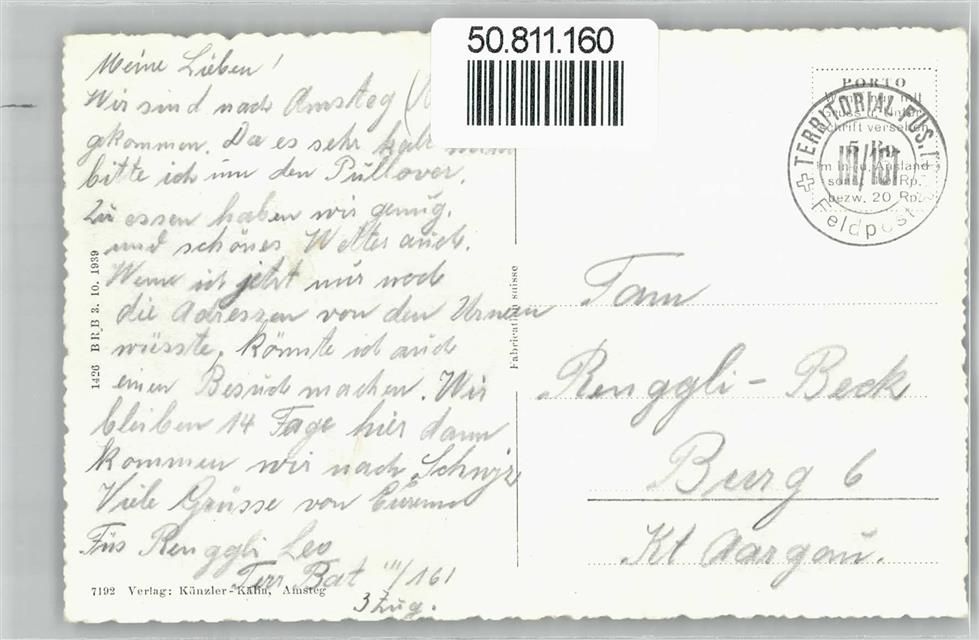 50.811.160
Meine Lieben!
Wir sind nach Amsteg (
gekommen. Da es sehr kalt
bitte ich um den Pullover.
Zu essen haben wir genug.
und schönes Wetter auch.
Wenn ich jetzt nur noch
die Adressen von den Urnern
wüsste, könnte ich auch
einen Besuch machen. Wir
bleiben 14 Tage hier dann
kommen wir nach Schwyz
Viele Grüsse von Eurem
Füs Renggli Leo
Terr Bat III/161
3 Zug.
7192 Verlag: Känzler-Kälin, Amsteg
1426 BRB 3. 10. 1939
Fabrication suisse
PORTO
TERRITORIAL FÜS.
III/161
Feldpost
schrift versehen
5 Rp.
bezw. 20 Rp.
Fam
Renggli-Beck
Burg 6
Kt Aargau.